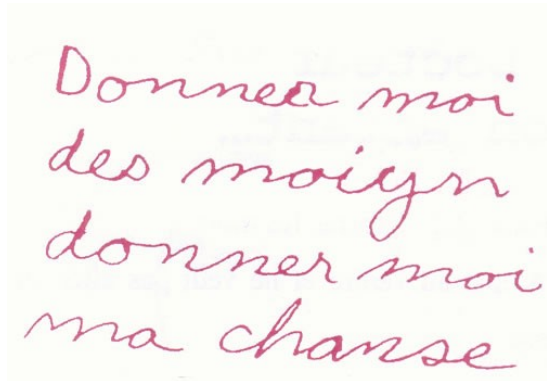 Donner moi
des moiyn
donner moi
ma chanse